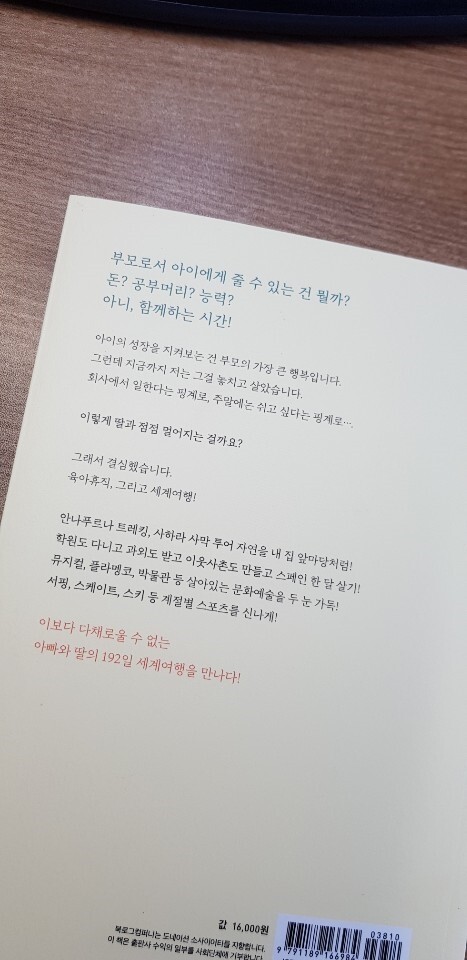 부모로서 아이에게 줄 수 있는 건 뭘까?
돈? 공부머리? 능력?
아니, 함께하는 시간!
아이의 성장을 지켜보는 건 부모의 가장 큰 행복입니다.
그런데 지금까지 저는 그걸 놓치고 살았습니다.
회사에서 일한다는 핑계로, 주말에는 쉬고 싶다는 핑계로….
이렇게 딸과 점점 멀어지는 걸까요?
그래서 결심했습니다.
육아휴직, 그리고 세계여행!
안나푸르나 트레킹, 사하라 사막 투어 자연을 내 집 앞마당처럼!
학원도 다니고 과외도 받고 이웃사촌도 만들고 스페인 한 달 살기!
뮤지컬, 플라멩코, 박물관 등 살아있는 문화예술을 두 눈 가득!
서핑, 스케이트, 스키 등 계절별 스포츠를 신나게!
이보다 다채로울 수 없는
아빠와 딸의 192일 세계여행을 만나다!
값 16,000원
북로그컴퍼니는 도네이션 소사이어티를 지향합니다.
이 책은 출판사 수익의 일부를 사회단체에 기부합니다.
03810
9 791189 166984